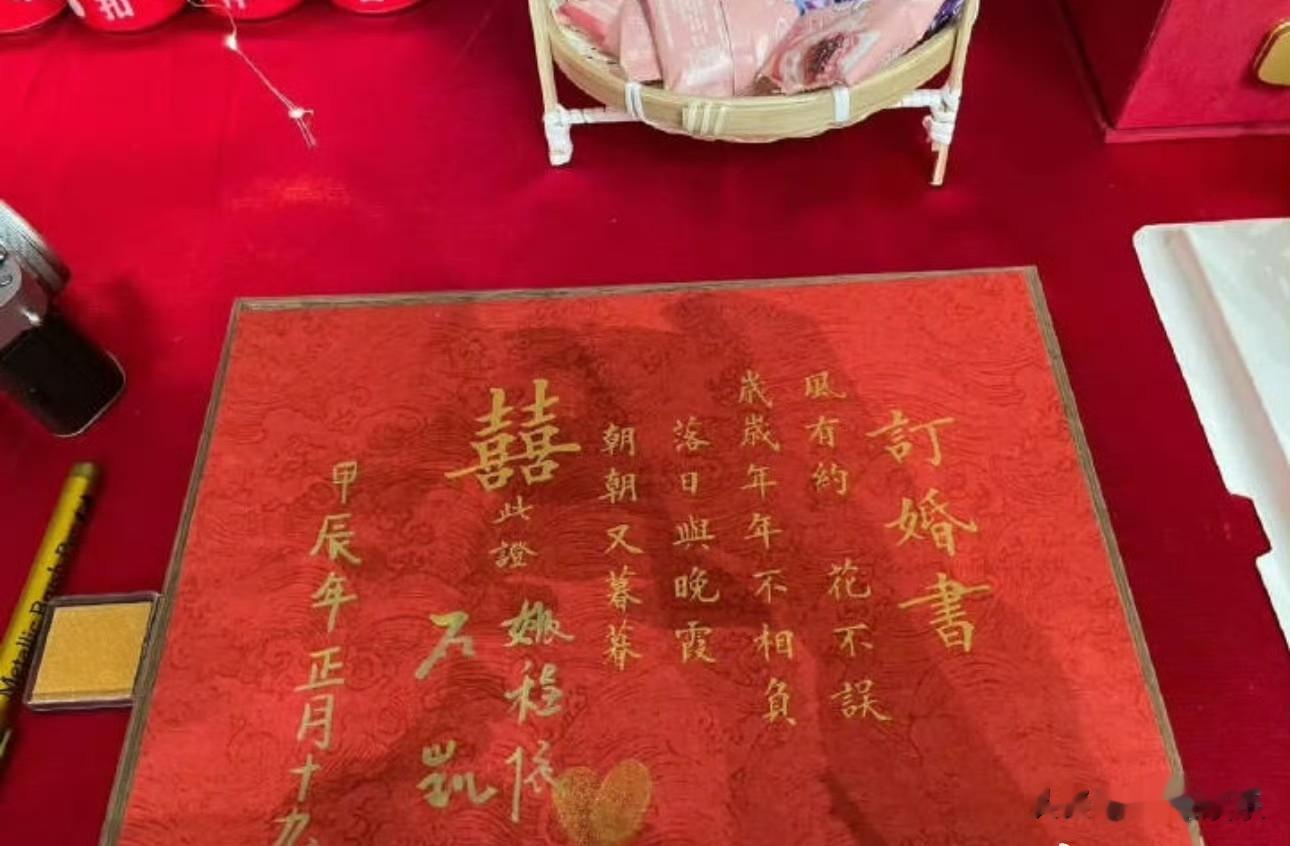 訂婚書
風有約 花不誤
歲歲年年不相負
落日與晚霞
朝朝又暮暮
囍
此證
石凱
甲辰年正月十九
Metallic
扣